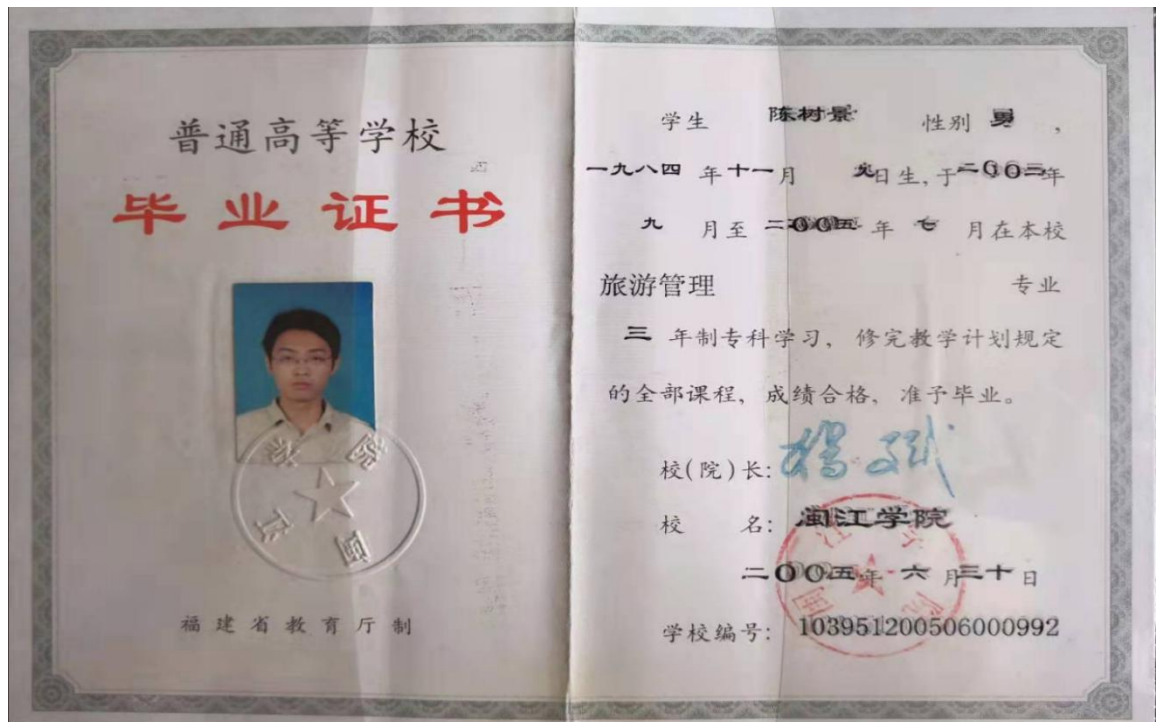 普通高等学校
毕业证书
福建省教育厅制
学生 陈树景 性别 男，
一九八四年十一月 九日生，于二〇〇二年
九 月至二〇〇五年 七 月在本校
旅游管理 专业
三 年制专科学习，修完教学计划规定
的全部课程，成绩合格，准予毕业。
校(院)长：杨斌
校 名：闽江学院
二〇〇五年 六 月三十日
学校编号：103951200506000992
闽江学院
闽江学院